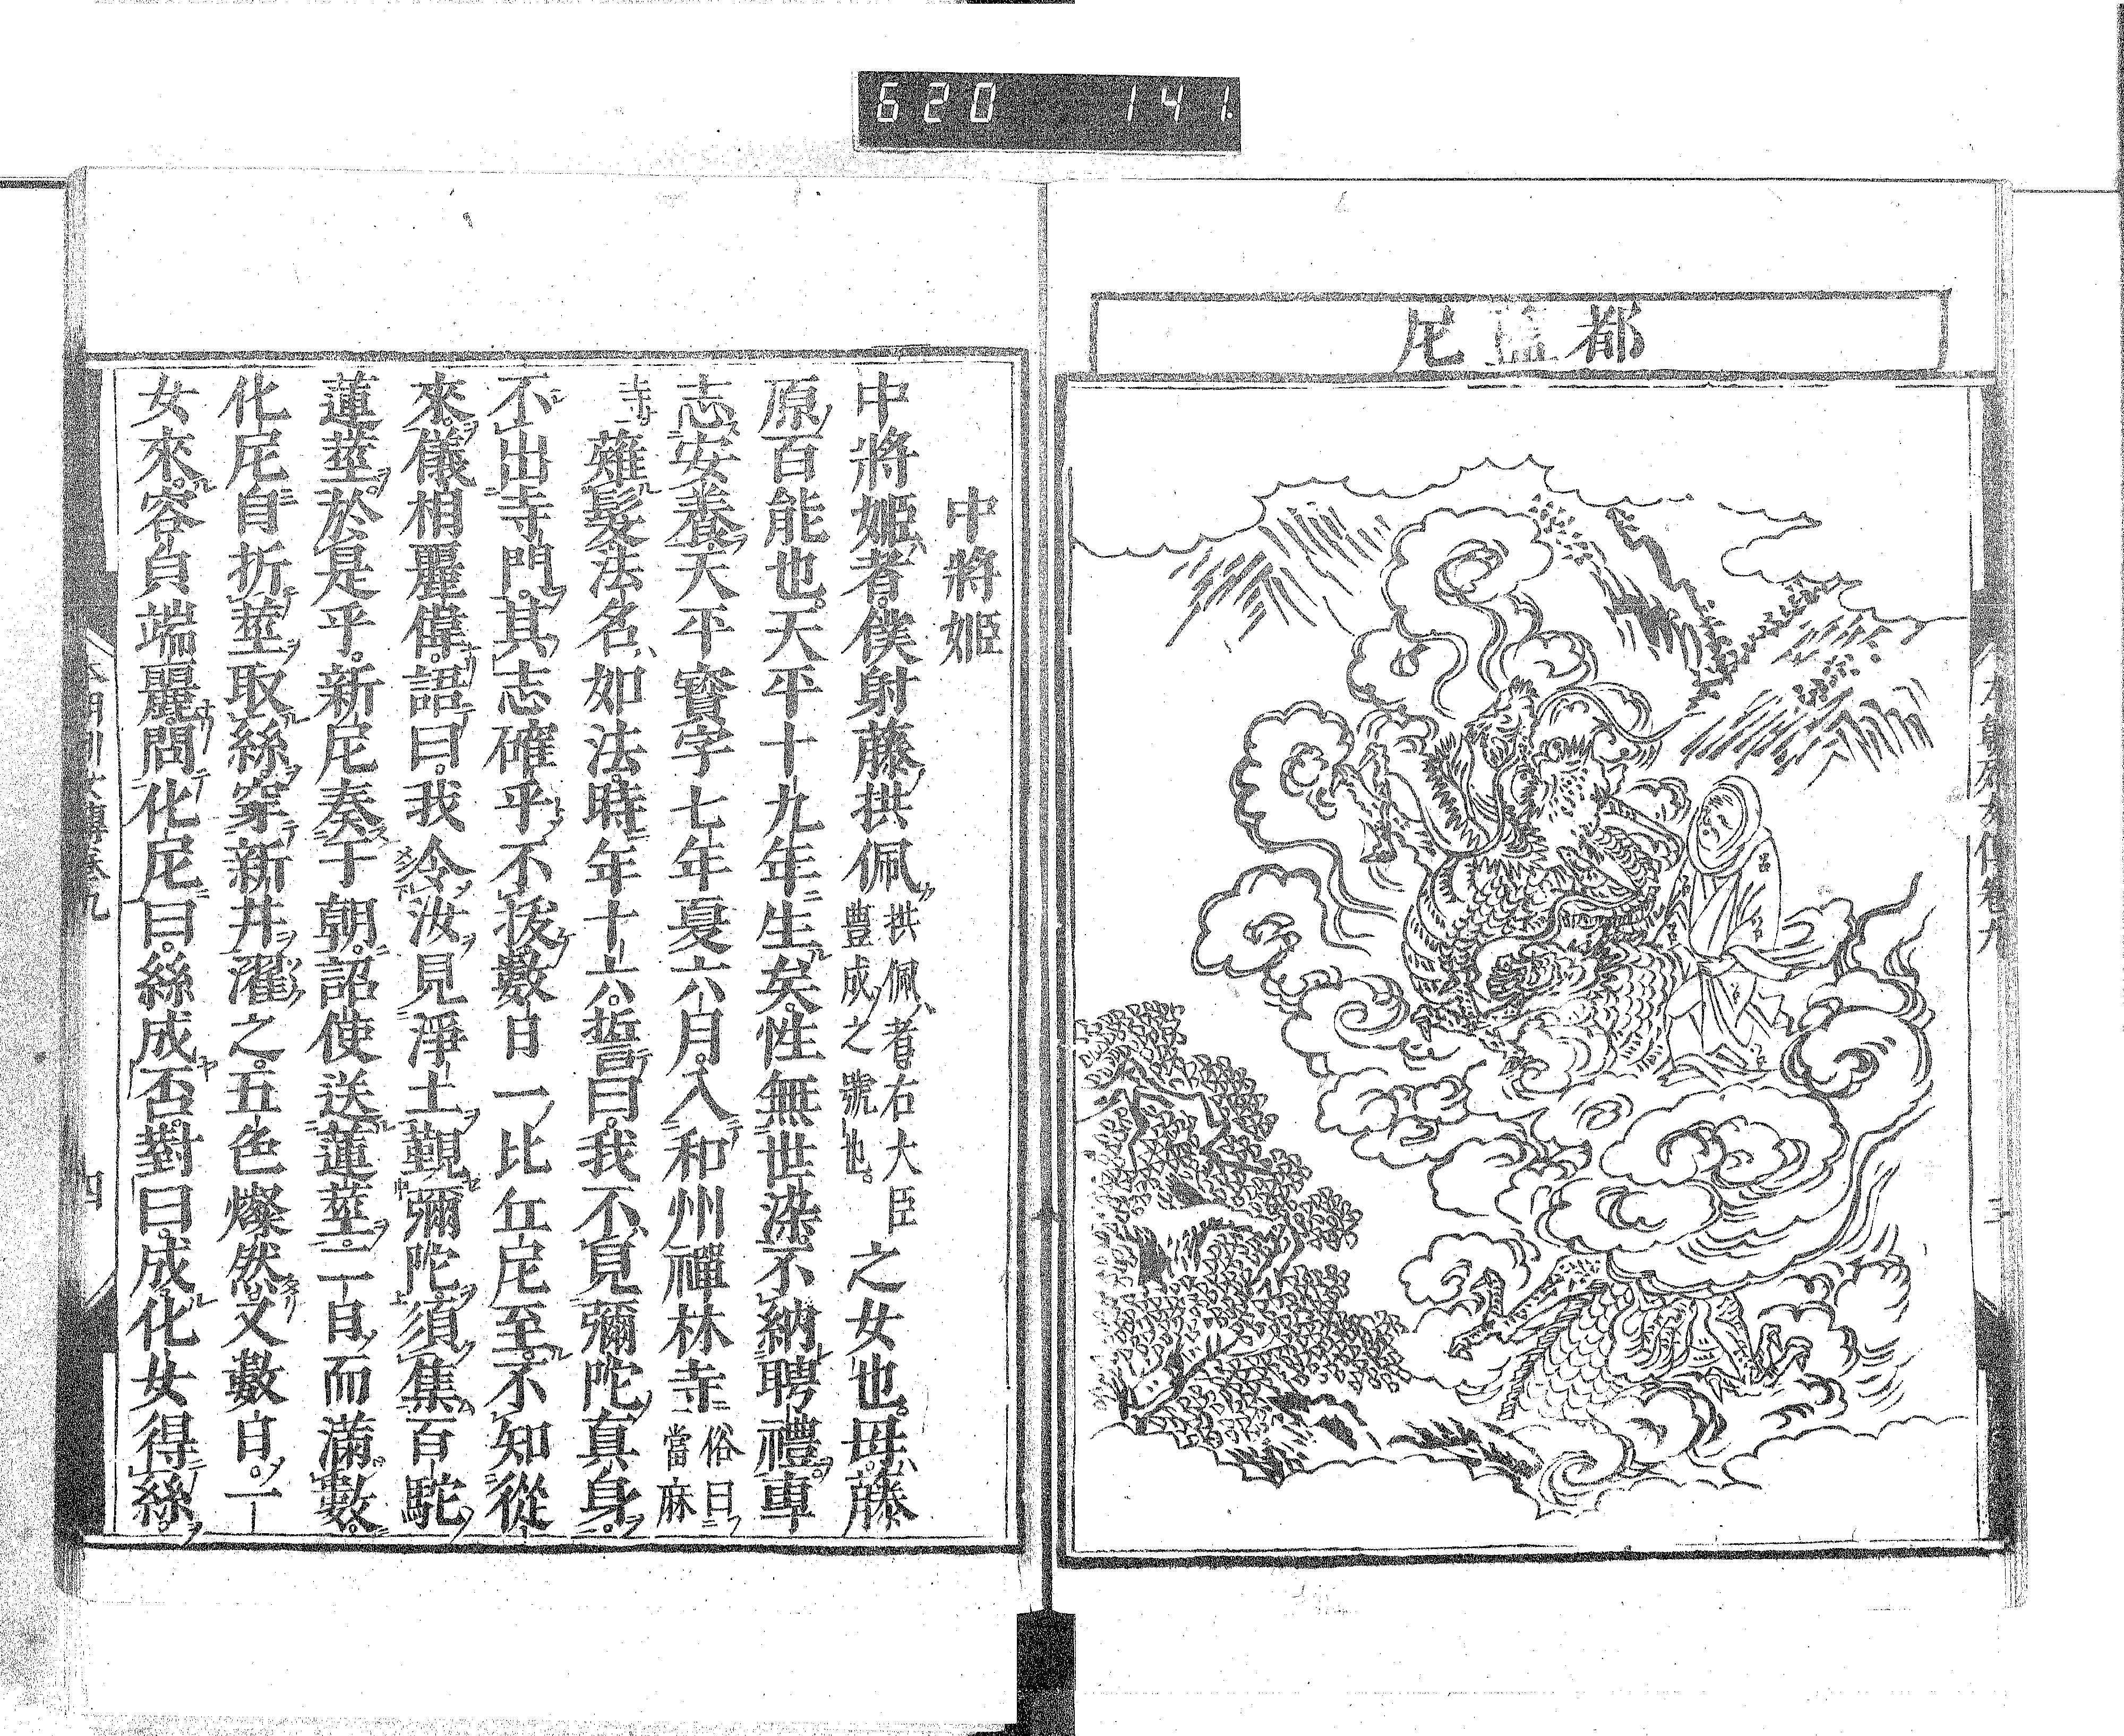 620 141
都藍尼
本朝列女傳卷九
三
中將姬
中將姬者。僕射藤拱佩拱佩者右大臣豊成之號也。之女也。毋藤
原百能也。天平十九年生矣。性無世染不納聘禮。專
志安養天平寶字七年夏六月。入和州禪林寺俗曰當麻
寺薙髮法名如法。時年十六。誓曰。我不見彌陀真身。
不出寺門。其志確乎不拔數日一比丘尼至。不知從
來。儀相麗偉。語曰。我令汝見淨土覲彌陀須集百駝
蓮莖。於是乎。新尼奏于朝。詔使送蓮莖。一百而滿數。
化尼自折莖取絲。穿新井濯之。五色燦然。又數日。一
女來。容貞端麗。問化尼曰。絲成否。對曰。成。化女得絲。
本朝列女傳卷九
四